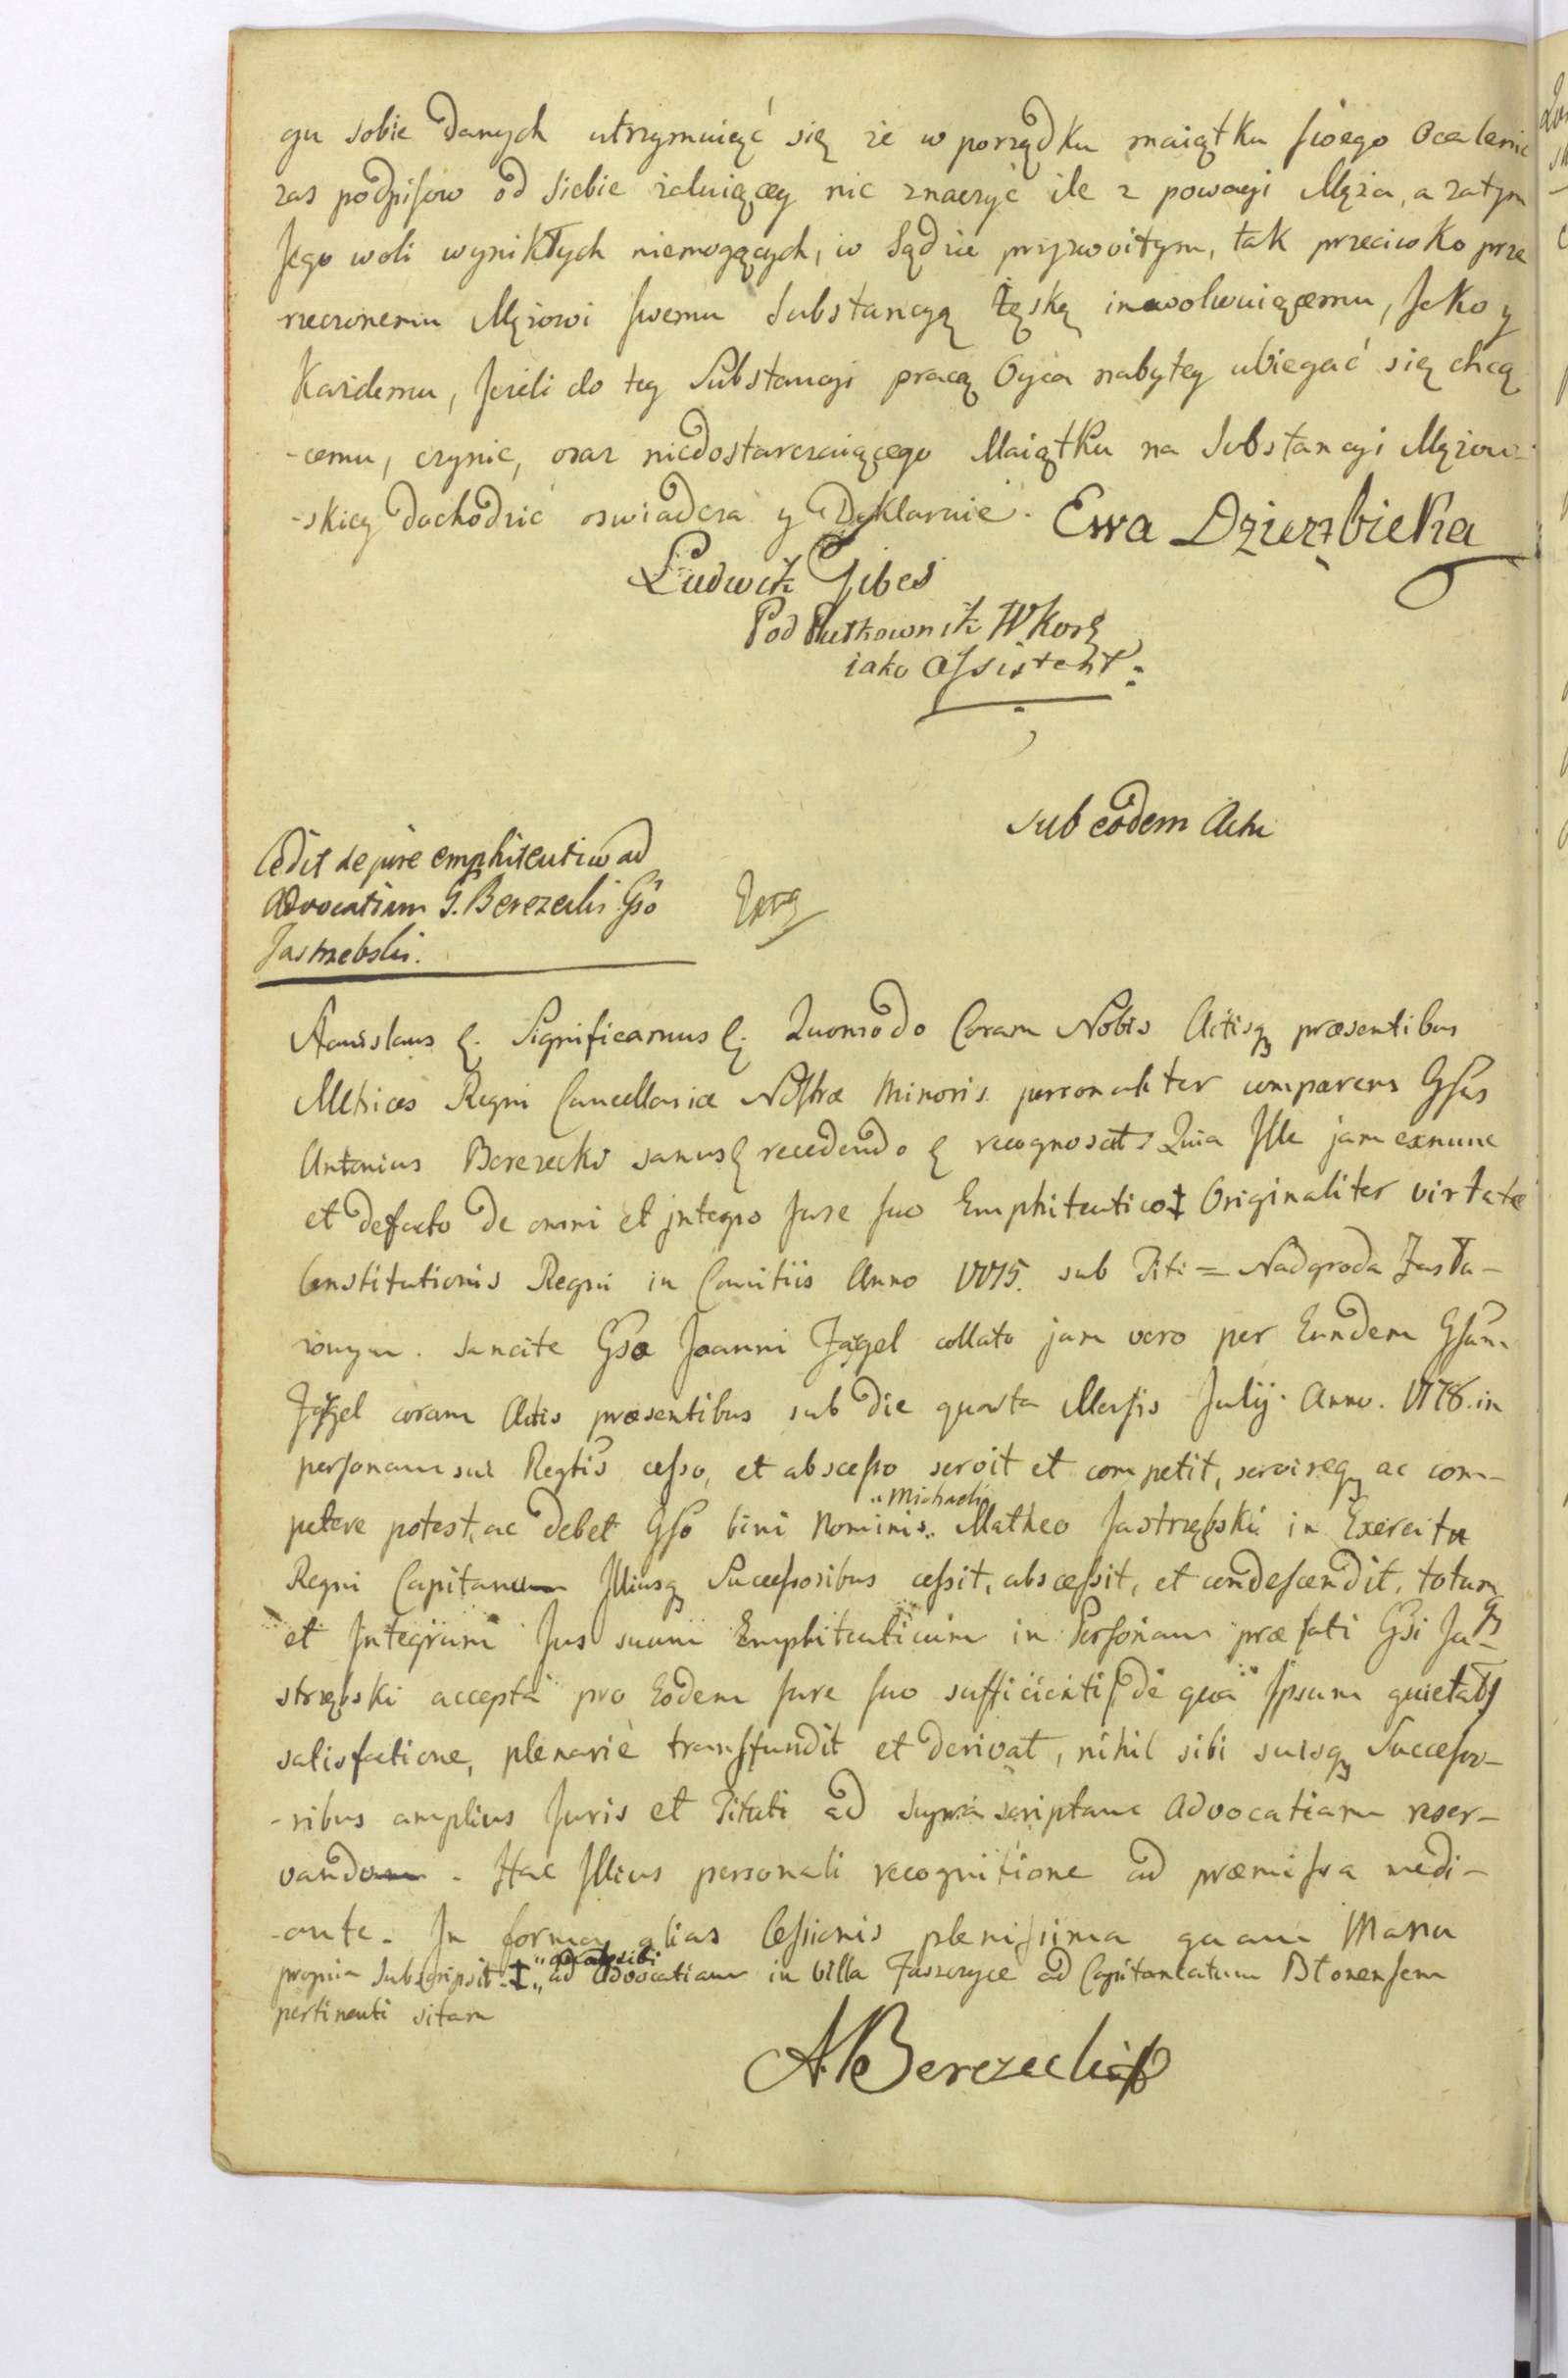 gu sobie danych utrzymuiąć się ze w porządku maiątku swego Ocalenie
zas podpisow od siebie żaluiącey nic znaczyć ile z powagi Męża, a zatym
Jego woli wynikłych niemogących, w Sądzie przyzwoitym, tak przeciwko prze
rzeczonemu Mężowi swemu Substancyą tęskę inwolwuiącemu, Jako y
Każdemu, Jeżeli do tey Substancyi pracą Oyca nabytey ubiegać się chcą
-cemu, czynic, oraz niedostarczaiącego Maiątku na Substancyi Mężow-
-skiey dochodzić oswiadcza y Deklaruie. Ewa Dzierzbicka
Ludwik Gibes
Pod Pułkownik W Kors
iako Assistent
Sub eodem Actu
Cedit de jure emphiteutico ad
Advocatiam G. Berezecki Gso
Jastrzebski.
Stanislaus &. Significamus &. Quomodo Coram Nobis Actisq præsentibus
Metrices Regni Cancellariæ Nostræ Minoris personaliter comparens Gsus
Antonius Berezecki sanus & recedendo & recognoscit Quia Ille jam exnunc
et defacto de omni et jntegro Jure suo Emphiteutico ‡ Originaliter virtute
Constitutionis Regni in Comitiis Anno 1775. sub Titi = Nadgroda Zasłu-
żonym. Sancite Gso Joanni Jagel collato jam vero per Eundem Gsum
Jagel coram Actis præsentibus sub die quarta Mensis Julij Anno. 1778. in
personam sui Regtis cesso, et abscesso servit et competit, servireq ac com-
petere potest, ac debet Gso bini Nominis „Michaeli„ Matheo Jastrzębski in Exercitu
Regni Capitaneo Illiusq Successoribus cessit, abscessit, et condescendit, totum
et Integrum Jus suum Emphiteuticum in Personam præfati Gsi Ja-
strzębski accepta pro Eodem Jure suo sufficienti de qua Ipsum quietat
satisfactione, plenariè transfundit et derivat, nihil sibi suisq Successo-
-ribus amplius Juris et Tituli ad supra scriptam Advocatiam reser-
vando. Hac Illius personali recognitione ad præmissa medi-
-ante. In forma alias Cessionis plenissima quam Manu
propria Subscripsit. ‡ „ad Advocatiam in Villa Jaszczyce ad Capitaneatum Blonensem
pertinenti sitam
A. Berezecki